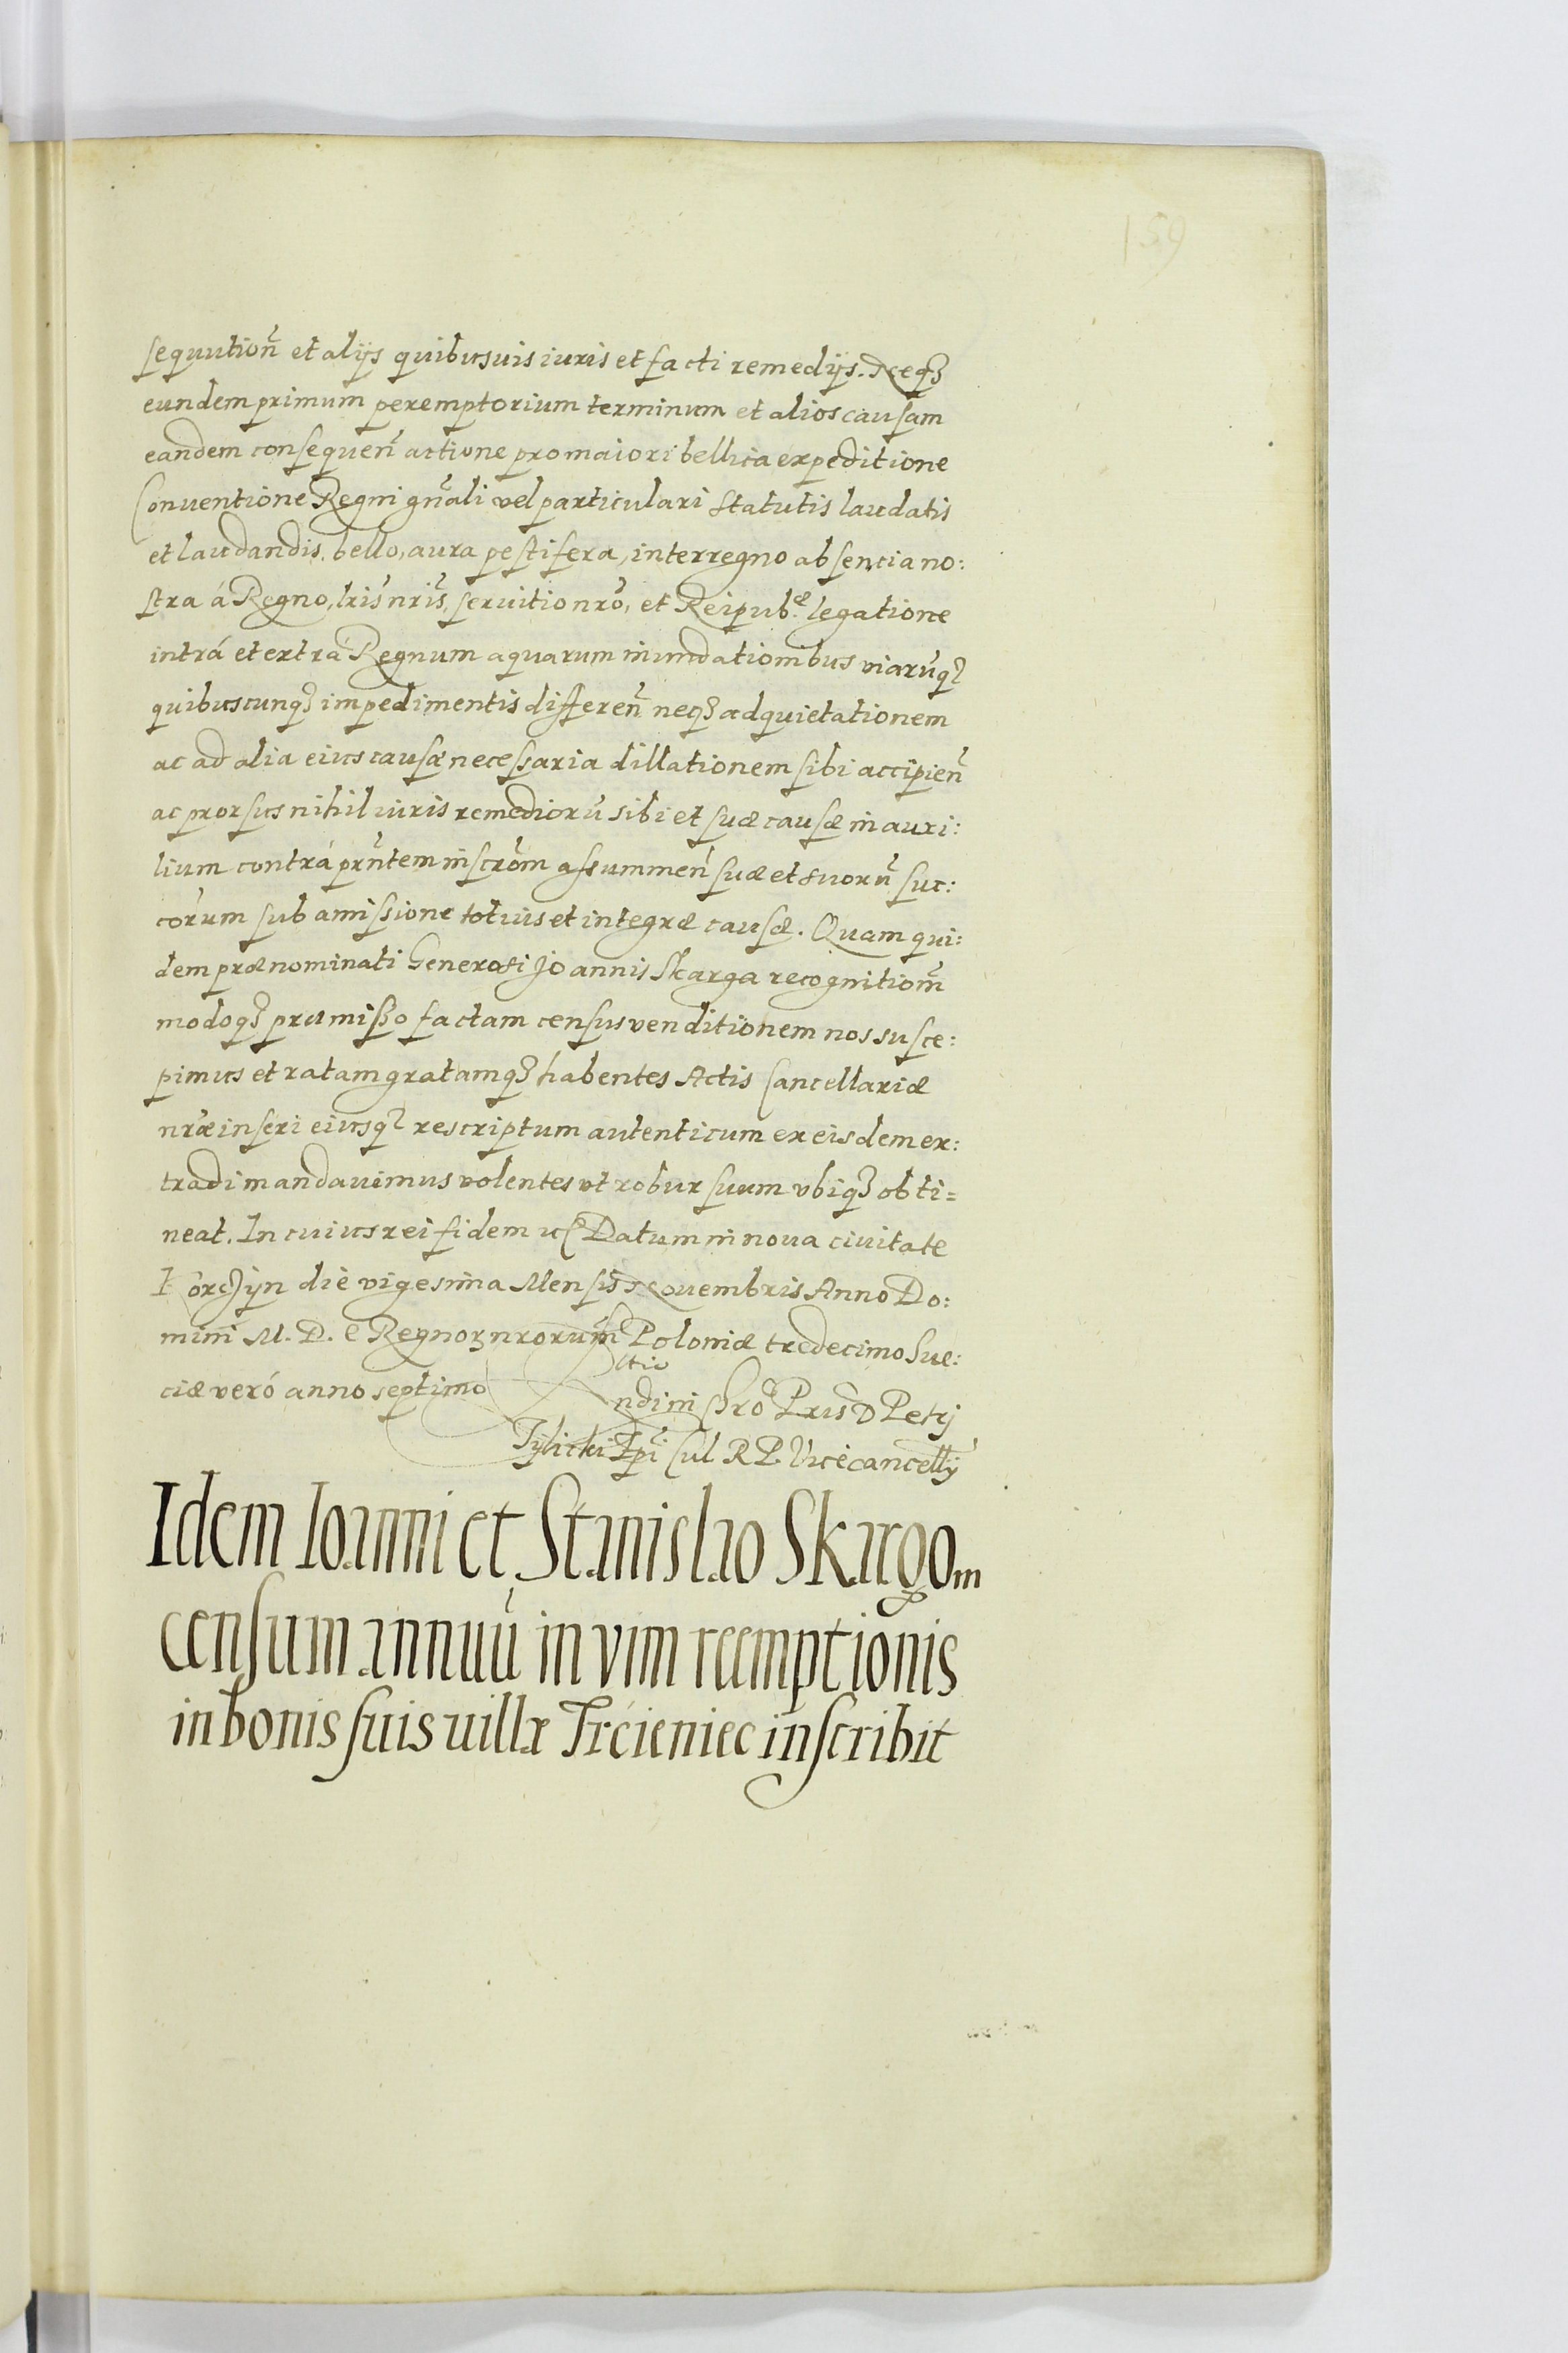 159
sequution̄ et alijs quibusuis iuris et facti remedijs. Neqꝫ
eundem primum peremptorium terminum et alios causam
eandem consequen̄ actione pro maiori bellica expeditione
Conuentione Regni gn̄ali vel particulari Statutis laudatis
et laudandis, bello, aura pestifera, interregno absencia no:
stra á Regno, lris̄ nris̄, seruitio nrō, et Reipub.æ legatione
intrá et extrá Regnum aquarum inundationibus viarūqꝫ
quibuscunqꝫ impedimentis differen̄ neqꝫ ad quietationem
ac ad alia eius causæ necessaria dillationem sibi accipien̄
ac prorsus nihil iuris remediorū sibi et suæ causæ in auxi:
lium contrá prn̄tem inscrōm assummen̄ suæ et suorū suc:
cōrum sub amissione totius et integræ causæ. Quam qui:
dem prænominati Generosi Joannis Skarga recognitiom̄
modoqꝫ præmisso factam census venditionem nos susce:
pimus et ratam gratamqꝫ habentes Actis Cancellariæ
nrǣ inseri eiusqꝫ rescriptum autenticum ex eisdem ex:
tradi mandauimus volentes vt robur suum vbiqꝫ obti=
neat. In cuius rei fidem ꝛc Datum in noua ciuitate
Korczyn die vigesima Mensis Nouembris Anno Do:
mini M. D. C Regnorꝫ nrorum̄ Poloniæ tredecimo Sue:
ciæ veró anno septimo
ndini Petrj
Tylicki Epi Cul R P. Vicecancellÿ
Idem Ioanni et Stanislao Skargom
censum annuū in vim reemptionis
in bonis suis uillæ Trcieniec inscribit